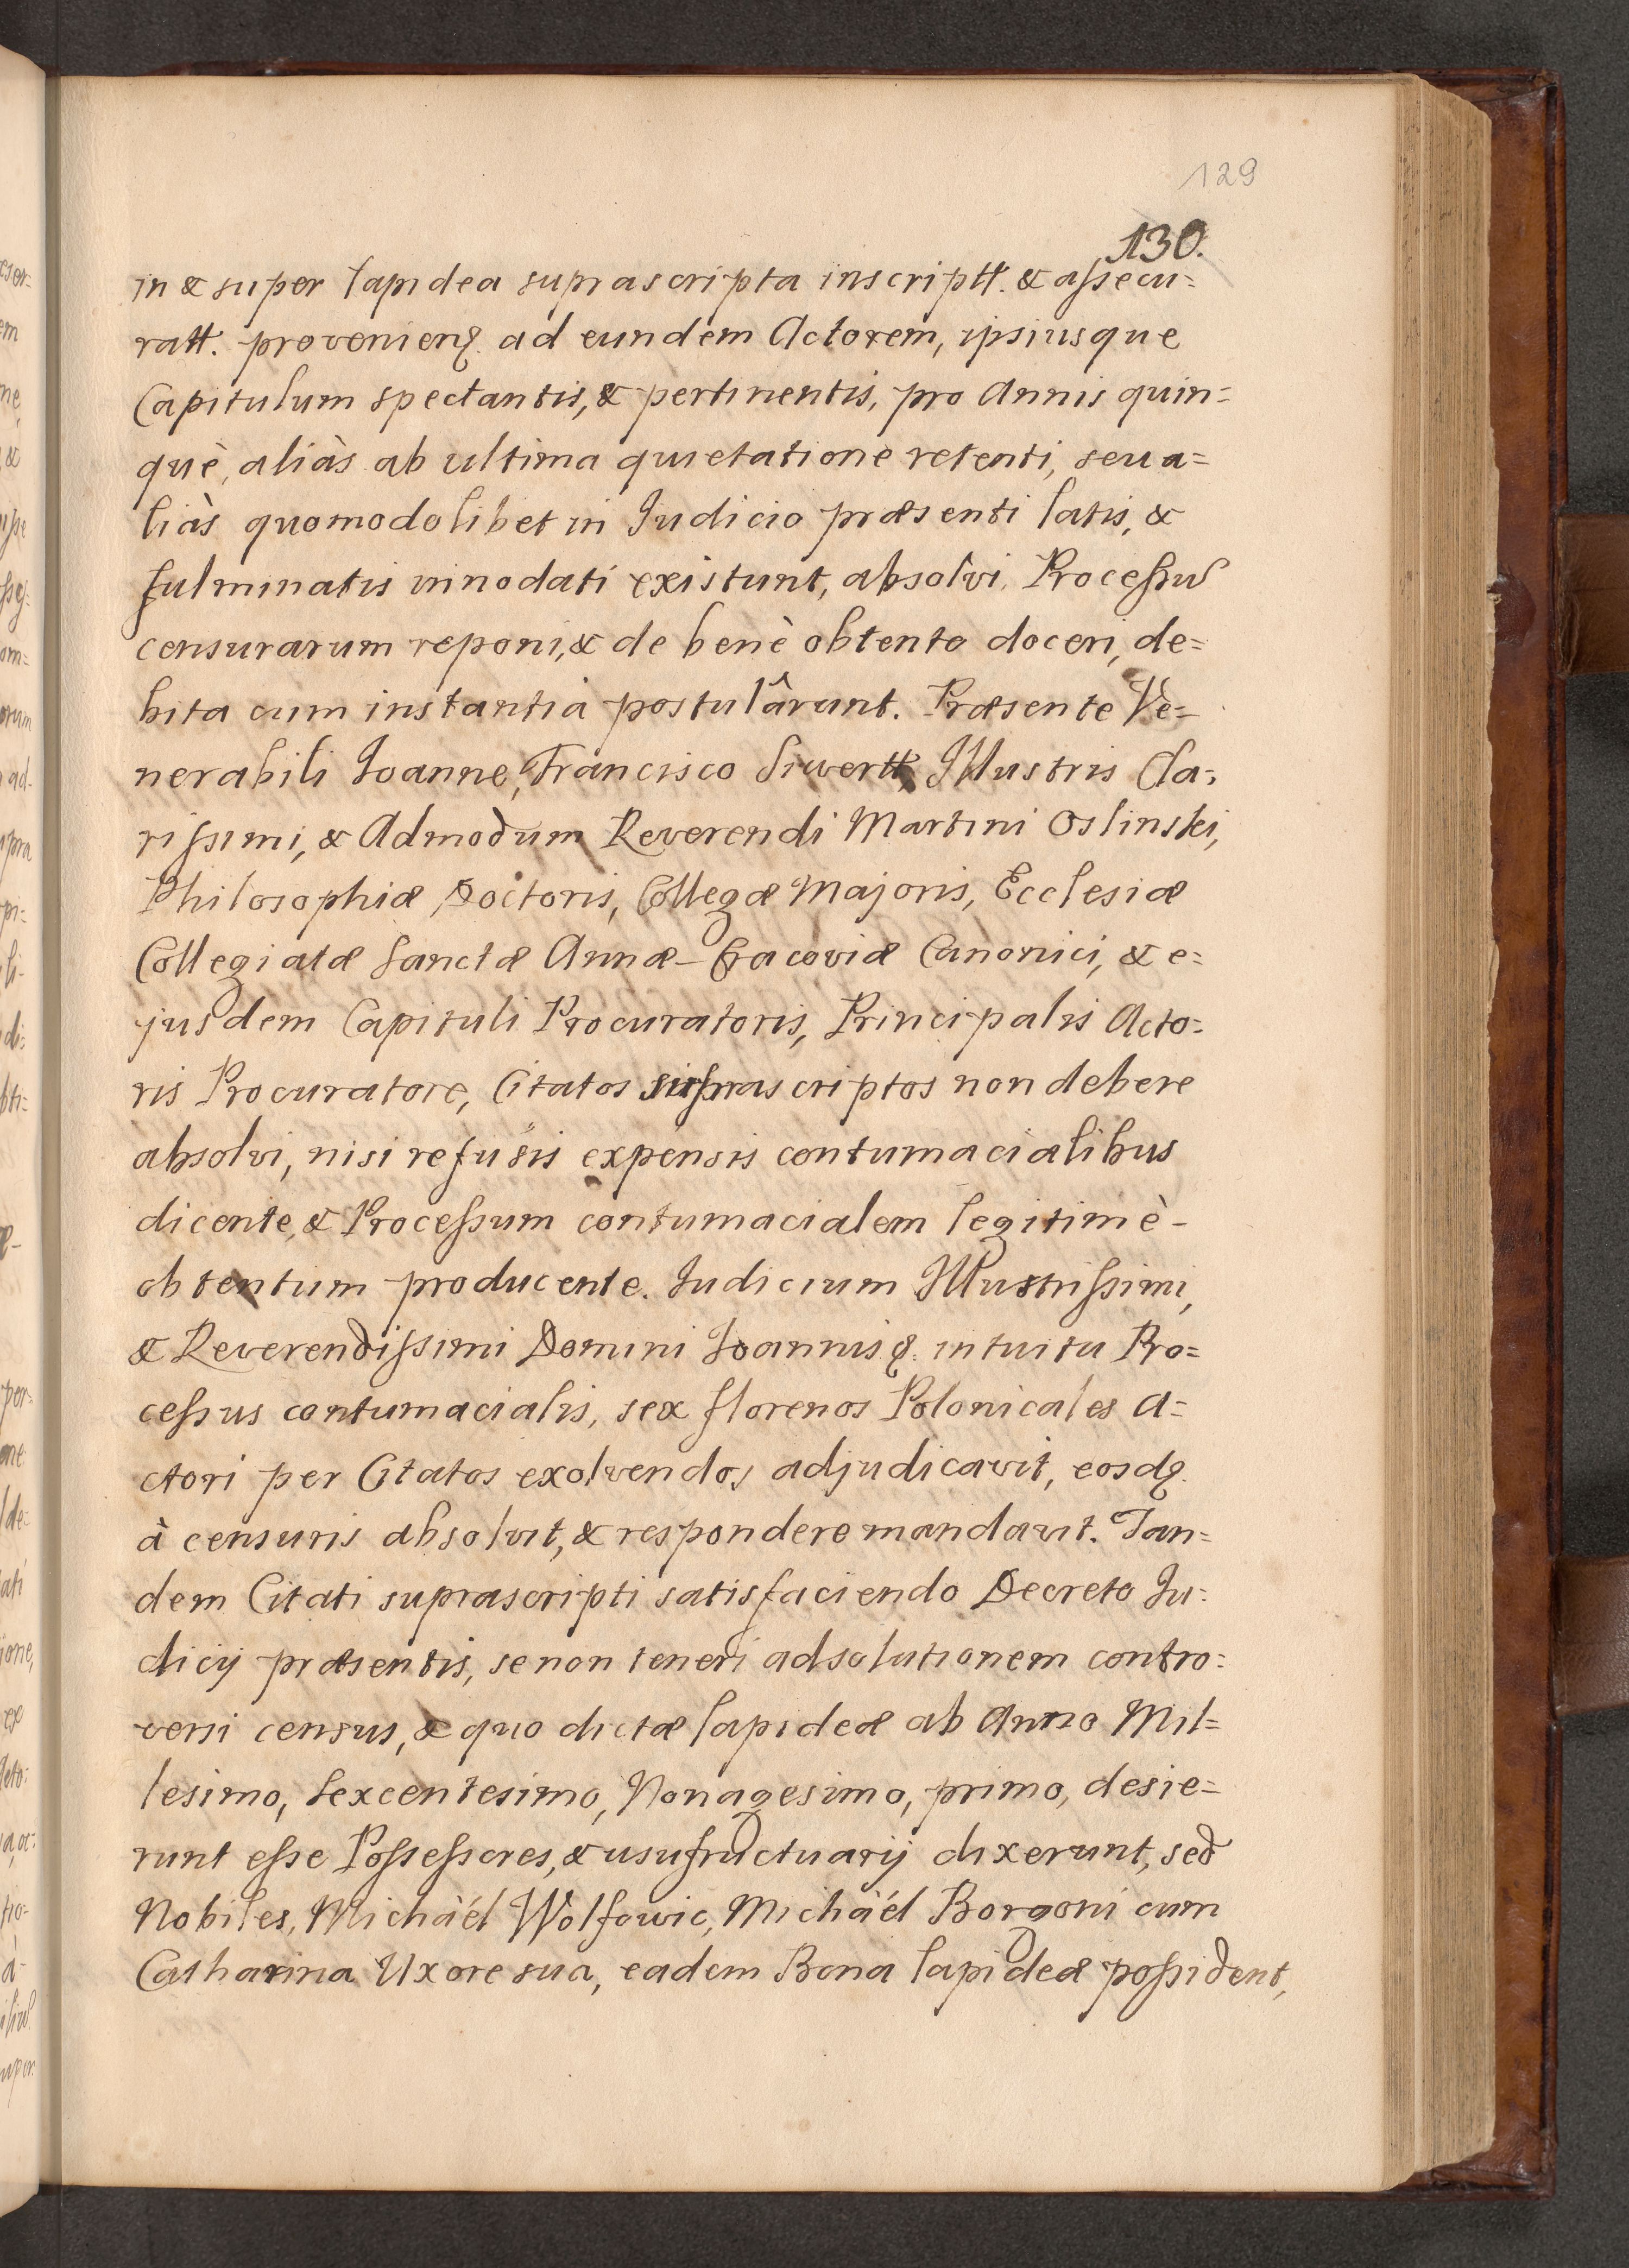 129
130.
in & super lapidea suprascripta inscriptt. & assecu=
ratt. provenienꝗ. ad eundem Actorem, ipsiusque
Capitulum spectantis, & pertinentis, pro Annis quin=
què, aliàs ab ultima quietatione retenti, seu a=
liàs quomodolibet in Iudicio præsenti latis, &
fulminatis innodati existunt, absolvi, Processus
censurarum reponi, & de benè obtento doceri, de=
bita cum instantia postulârunt. Præsente Ve=
nerabili Ioanne, Francisco Siwertt, Illustris Cla=
rissimi, & Admodum Reverendi Martini Oslinski,
Philosophiæ Doctoris, Collegæ Majoris, Ecclesiæ
Collegiatæ Sanctæ Annæ - Cracoviæ Canonici, & e=
jusdem Capituli Procuratoris, Principalis Acto=
ris Procuratore, Citatos suprascriptos non debere
absolvi, nisi refusis expensis contumacialibus
dicente, & Processum contumacialem legitimè -
obtentum producente. Iudicium Illustrissimi,
& Reverendissimi Domini Ioannis ꝗ. intuitu Pro=
cessus contumacialis, sex florenos Polonicales A=
ctori per Citatos exolvendos adjudicavit, eosdꝗ.
à censuris absolvit, & respondere mandavit. Tan=
dem Citati suprascripti satisfaciendo Decreto Iu=
dicij præsentis, se non teneri ad solutionem contro=
versi census, & quo dictæ lapideæ ab Anno Mil=
lesimo, Sexcentesimo, Nonagesimo, primo, desie=
runt esse Possessores, & usufructuarij dixerunt, sed
Nobiles, Michäél Wolfowic, Michäél Borgoni cum
Catharina Uxore sua, eadem Bona lapideæ possident,